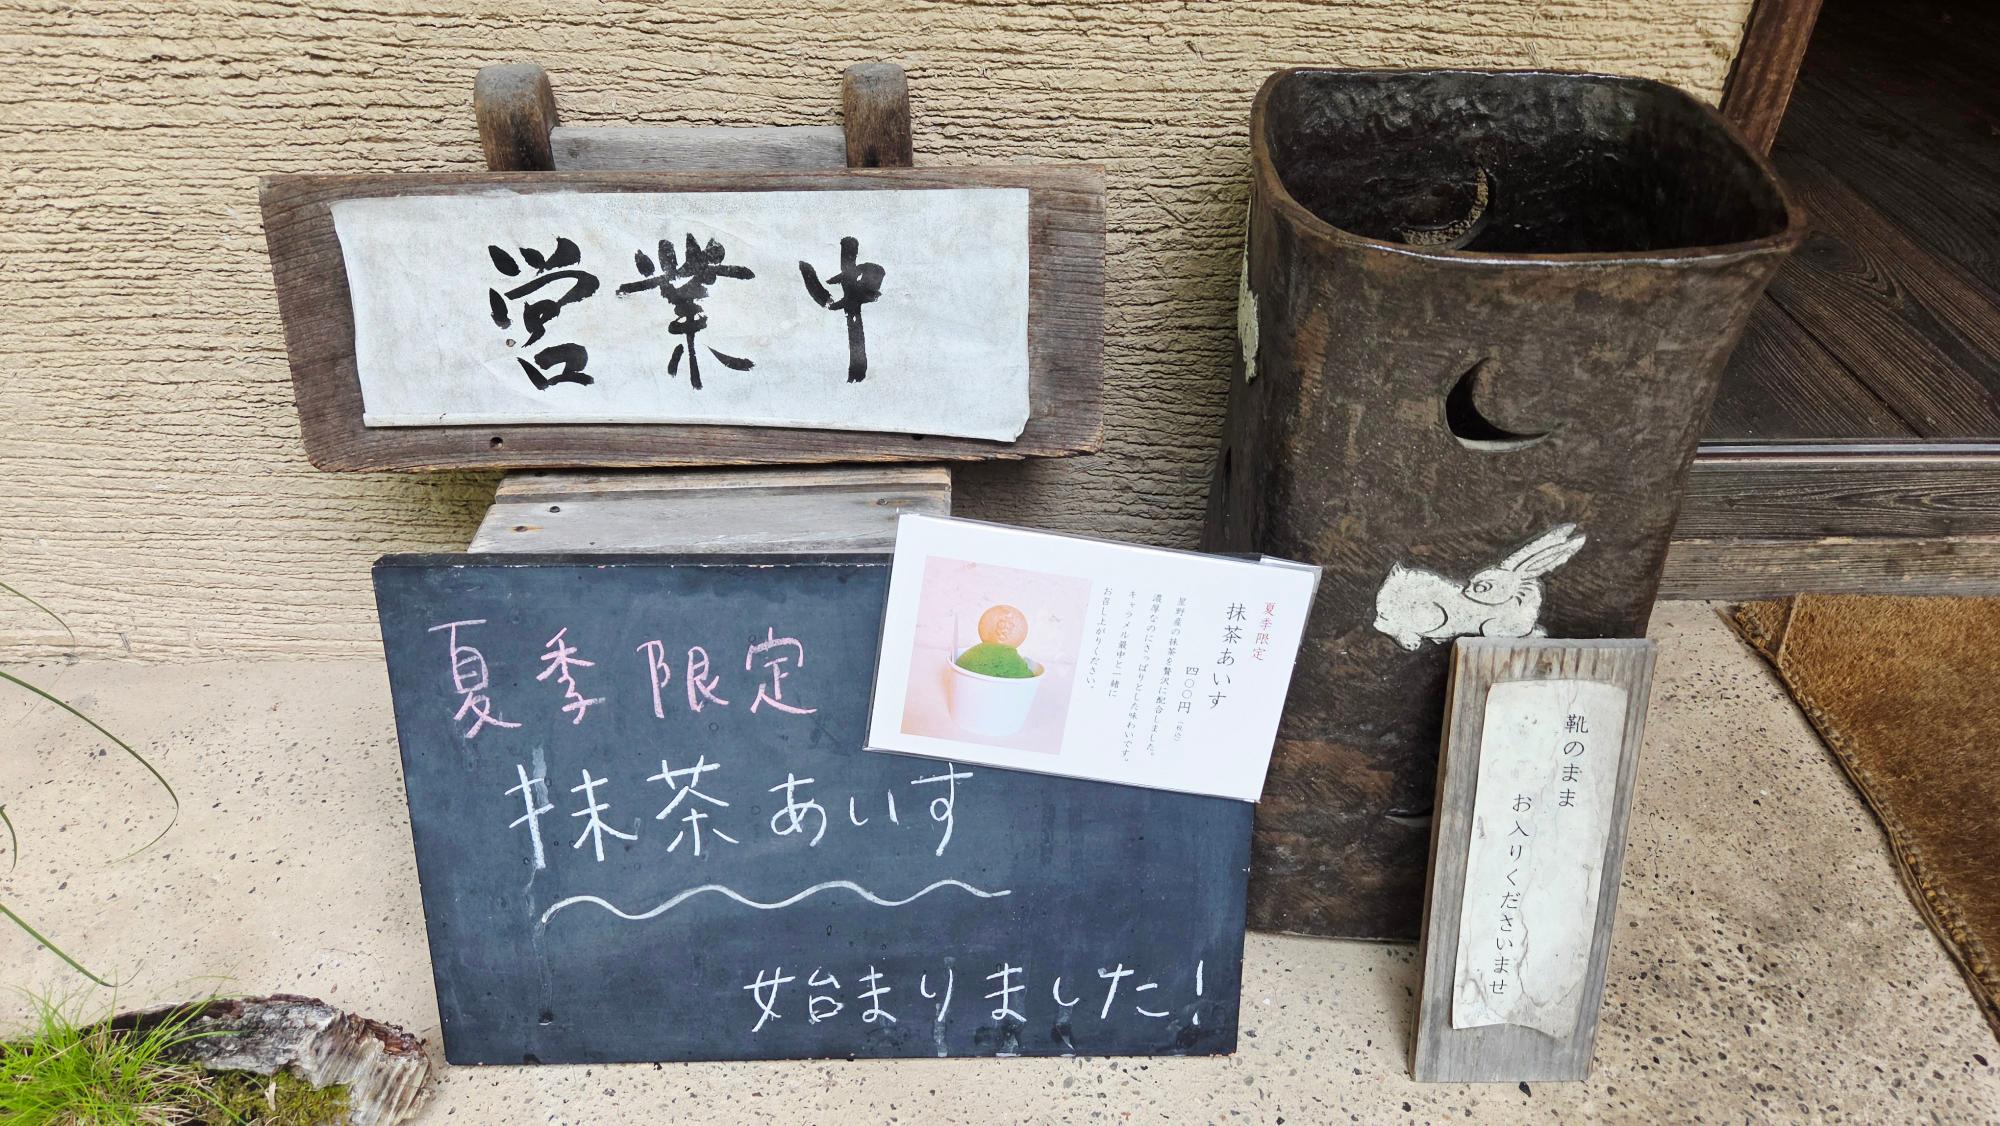 営業中
夏季限定
抹茶あいす
始まりました!
夏季限定
抹茶あいす
四〇〇円(税込)
星野産の抹茶を贅沢に配合しました。
濃厚なのにさっぱりとした味わいです。
キャラメル最中と一緒に
お召し上がりください。
靴のまま
お入りくださいませ